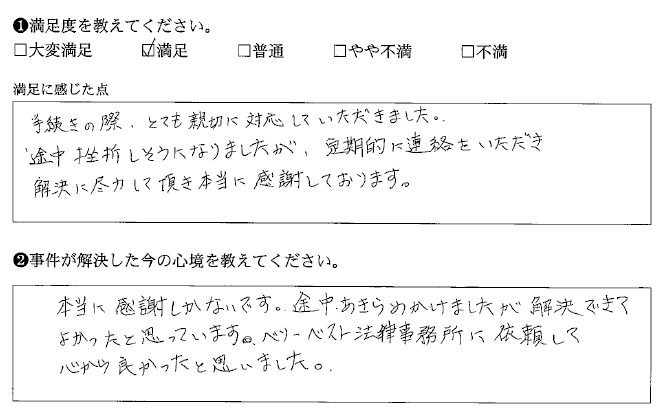 ❶満足度を教えてください。
□大変満足 ☑満足 □普通 □やや不満 □不満
満足に感じた点
手続きの際、とても親切に対応していただきました。
途中挫折しそうになりましたが、定期的に連絡をいただき
解決に尽力して頂き本当に感謝しております。
❷事件が解決した今の心境を教えてください。
本当に感謝しかないです。途中あきらめかけましたが解決できて
よかったと思っています。ベリーベスト法律事務所に依頼して
心から良かったと思いました。